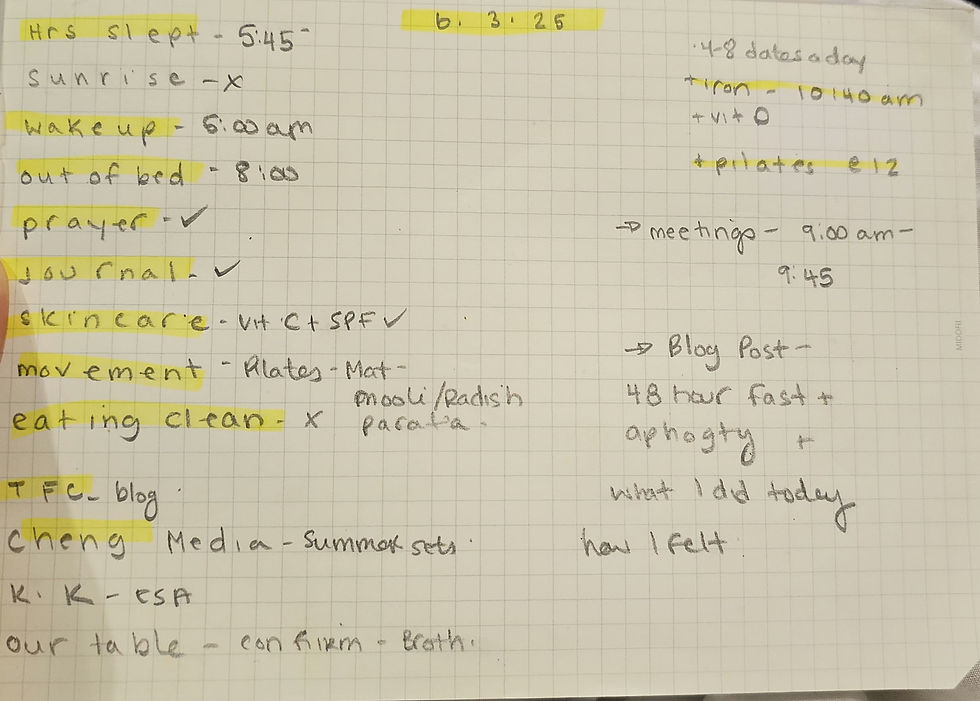 6. 3. 25
Hrs slept - 5:45 -
sunrise - x
wake up - 5:00 am
out of bed - 8:00
prayer - ✓
Journal - ✓
skincare - vit C + SPF ✓
movement - Pilates - Mat -
eating clean - x
mooli/Radish
parata -
TFC - blog
Cheng Media - Summer sets.
K. K - ESA
our table - confirm - Broth.
· 4-8 dates a day
+ iron - 10:40 am
+ vit D
+ pilates @ 12
→ meetings - 9:00 am -
9:45
→ Blog Post -
48 hour fast +
aphogty +
what I did today
how I felt
MIDORI